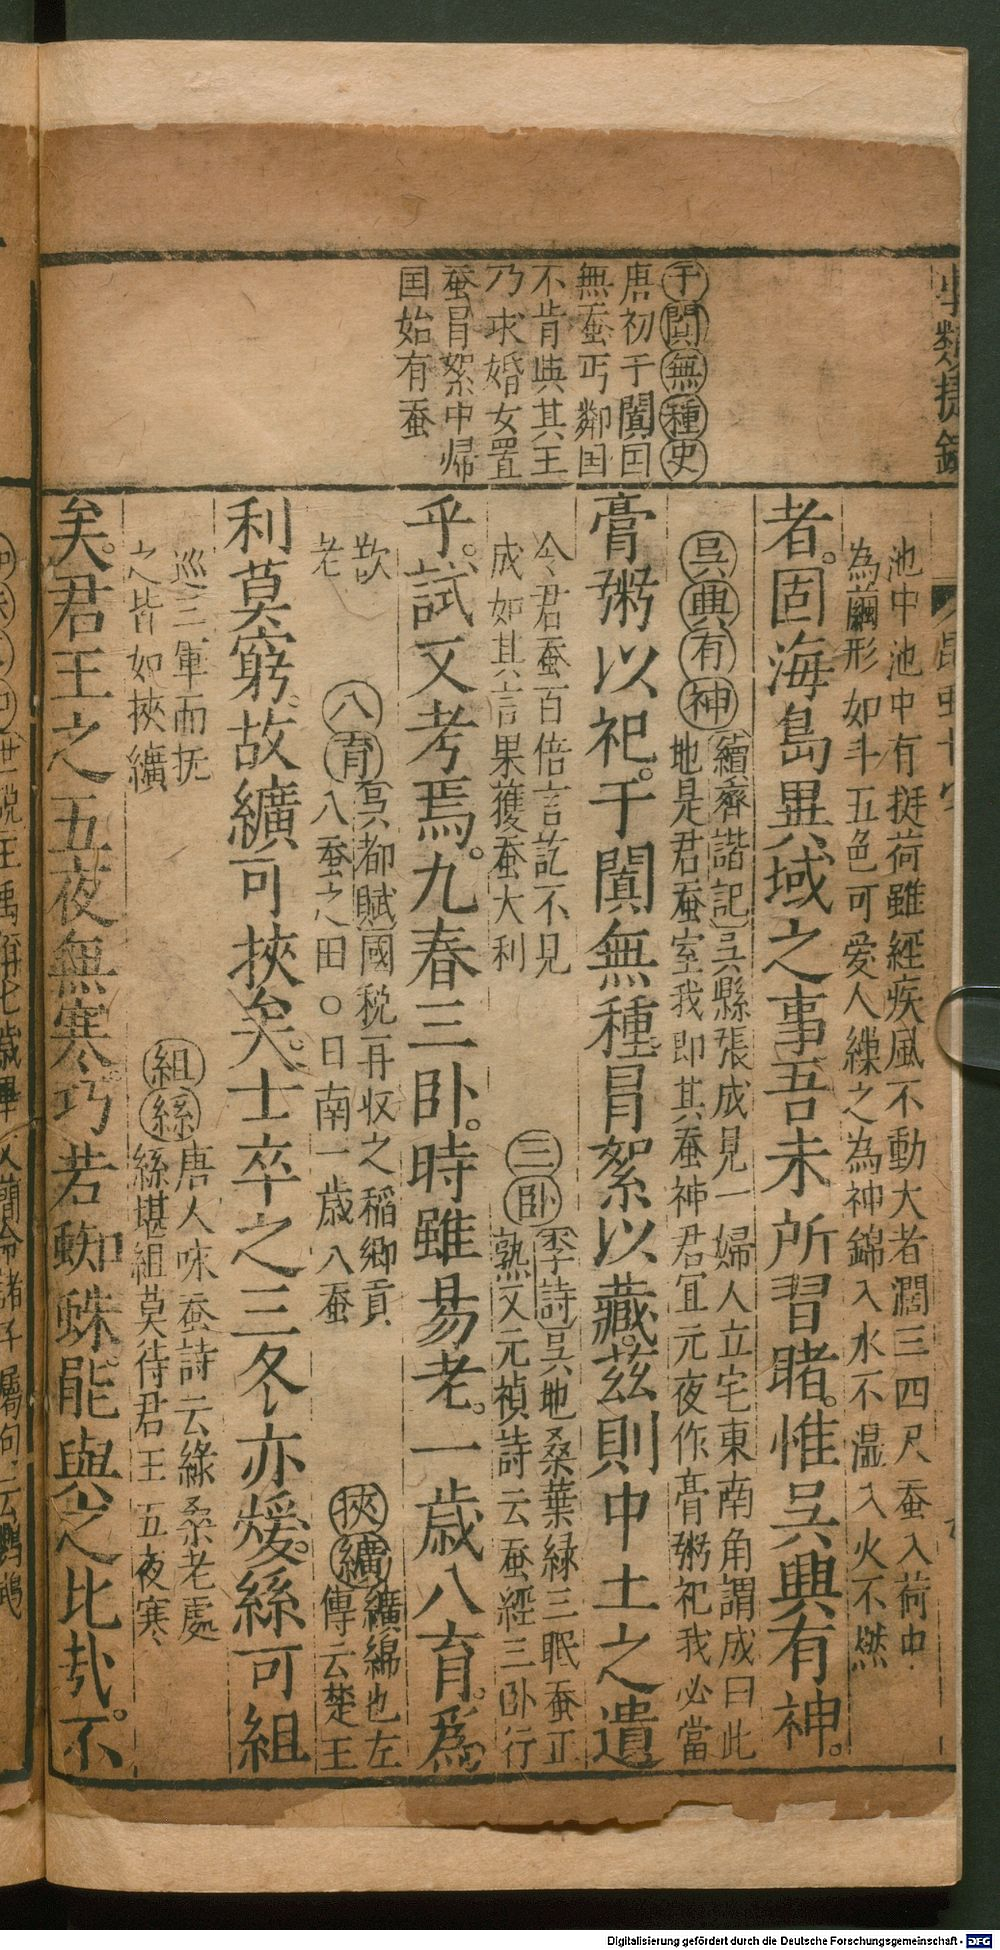 池中池中有挺荷雖經疾風不動大者濶三四尺蚕入荷中
為繭形如斗五色可愛人繰之為神錦入水不濕入火不燃
者。固海島異域之事吾未所習睹。惟吳興有神。
吳興有神
續齊諧記吳縣張成見一婦人立宅東南角謂成曰此
地是君蚕室我即其蚕神君宜元夜作膏粥祀我必當
于闐無種史
唐初于闐囯
無蚕丐鄰囯
不肯與其王
乃求婚女置
蚕冐絮中帰
囯始有蚕
膏粥以祀。于闐無種冐絮以藏。茲則中土之遺
令君蚕百倍言訖不見
成如其言果獲蚕大利
三卧
李詩吳地桑葉緑三眠蚕正
熟又元禎詩云蚕經三卧行
乎。試又考焉。九春三卧。時雖易老。一歲八育。爲
歎
老
八育
吳都賦國税再収之稲鄉貢
八蚕之田○日南一歳八蚕
挾纊
纊綿也左
傳云楚王
利莫窮。故纊可挾矣。士卒之三冬亦煖。絲可組
巡三軍而抚
之皆如挾纊
組絲
唐人咏蚕詩云綠桑老處
絲堪組莫待君王五夜寒
矣。君王之五夜無寒。巧若蜘蛛。能與之比㢤。不
Digitalisierung gefördert durch die Deutsche Forschungsgemeinschaft - DFG